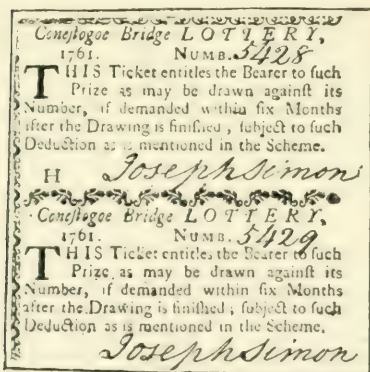 Coneſtogoe Bridge LOTTERY,
1761. NUMB. 5428
THIS Ticket entitles the Bearer to ſuch
Prize as may be drawn againſt its
Number, if demanded within ſix Months
after the Drawing is finiſhed, ſubject to ſuch
Deduction as is mentioned in the Scheme.
H Joseph Simon
Coneſtogoe Bridge LOTTERY,
1761. NUMB. 5429
THIS Ticket entitles the Bearer to ſuch
Prize as may be drawn againſt its
Number, if demanded within ſix Months
after the Drawing is finiſhed; ſubject to ſuch
Deduction as is mentioned in the Scheme.
Joseph Simon